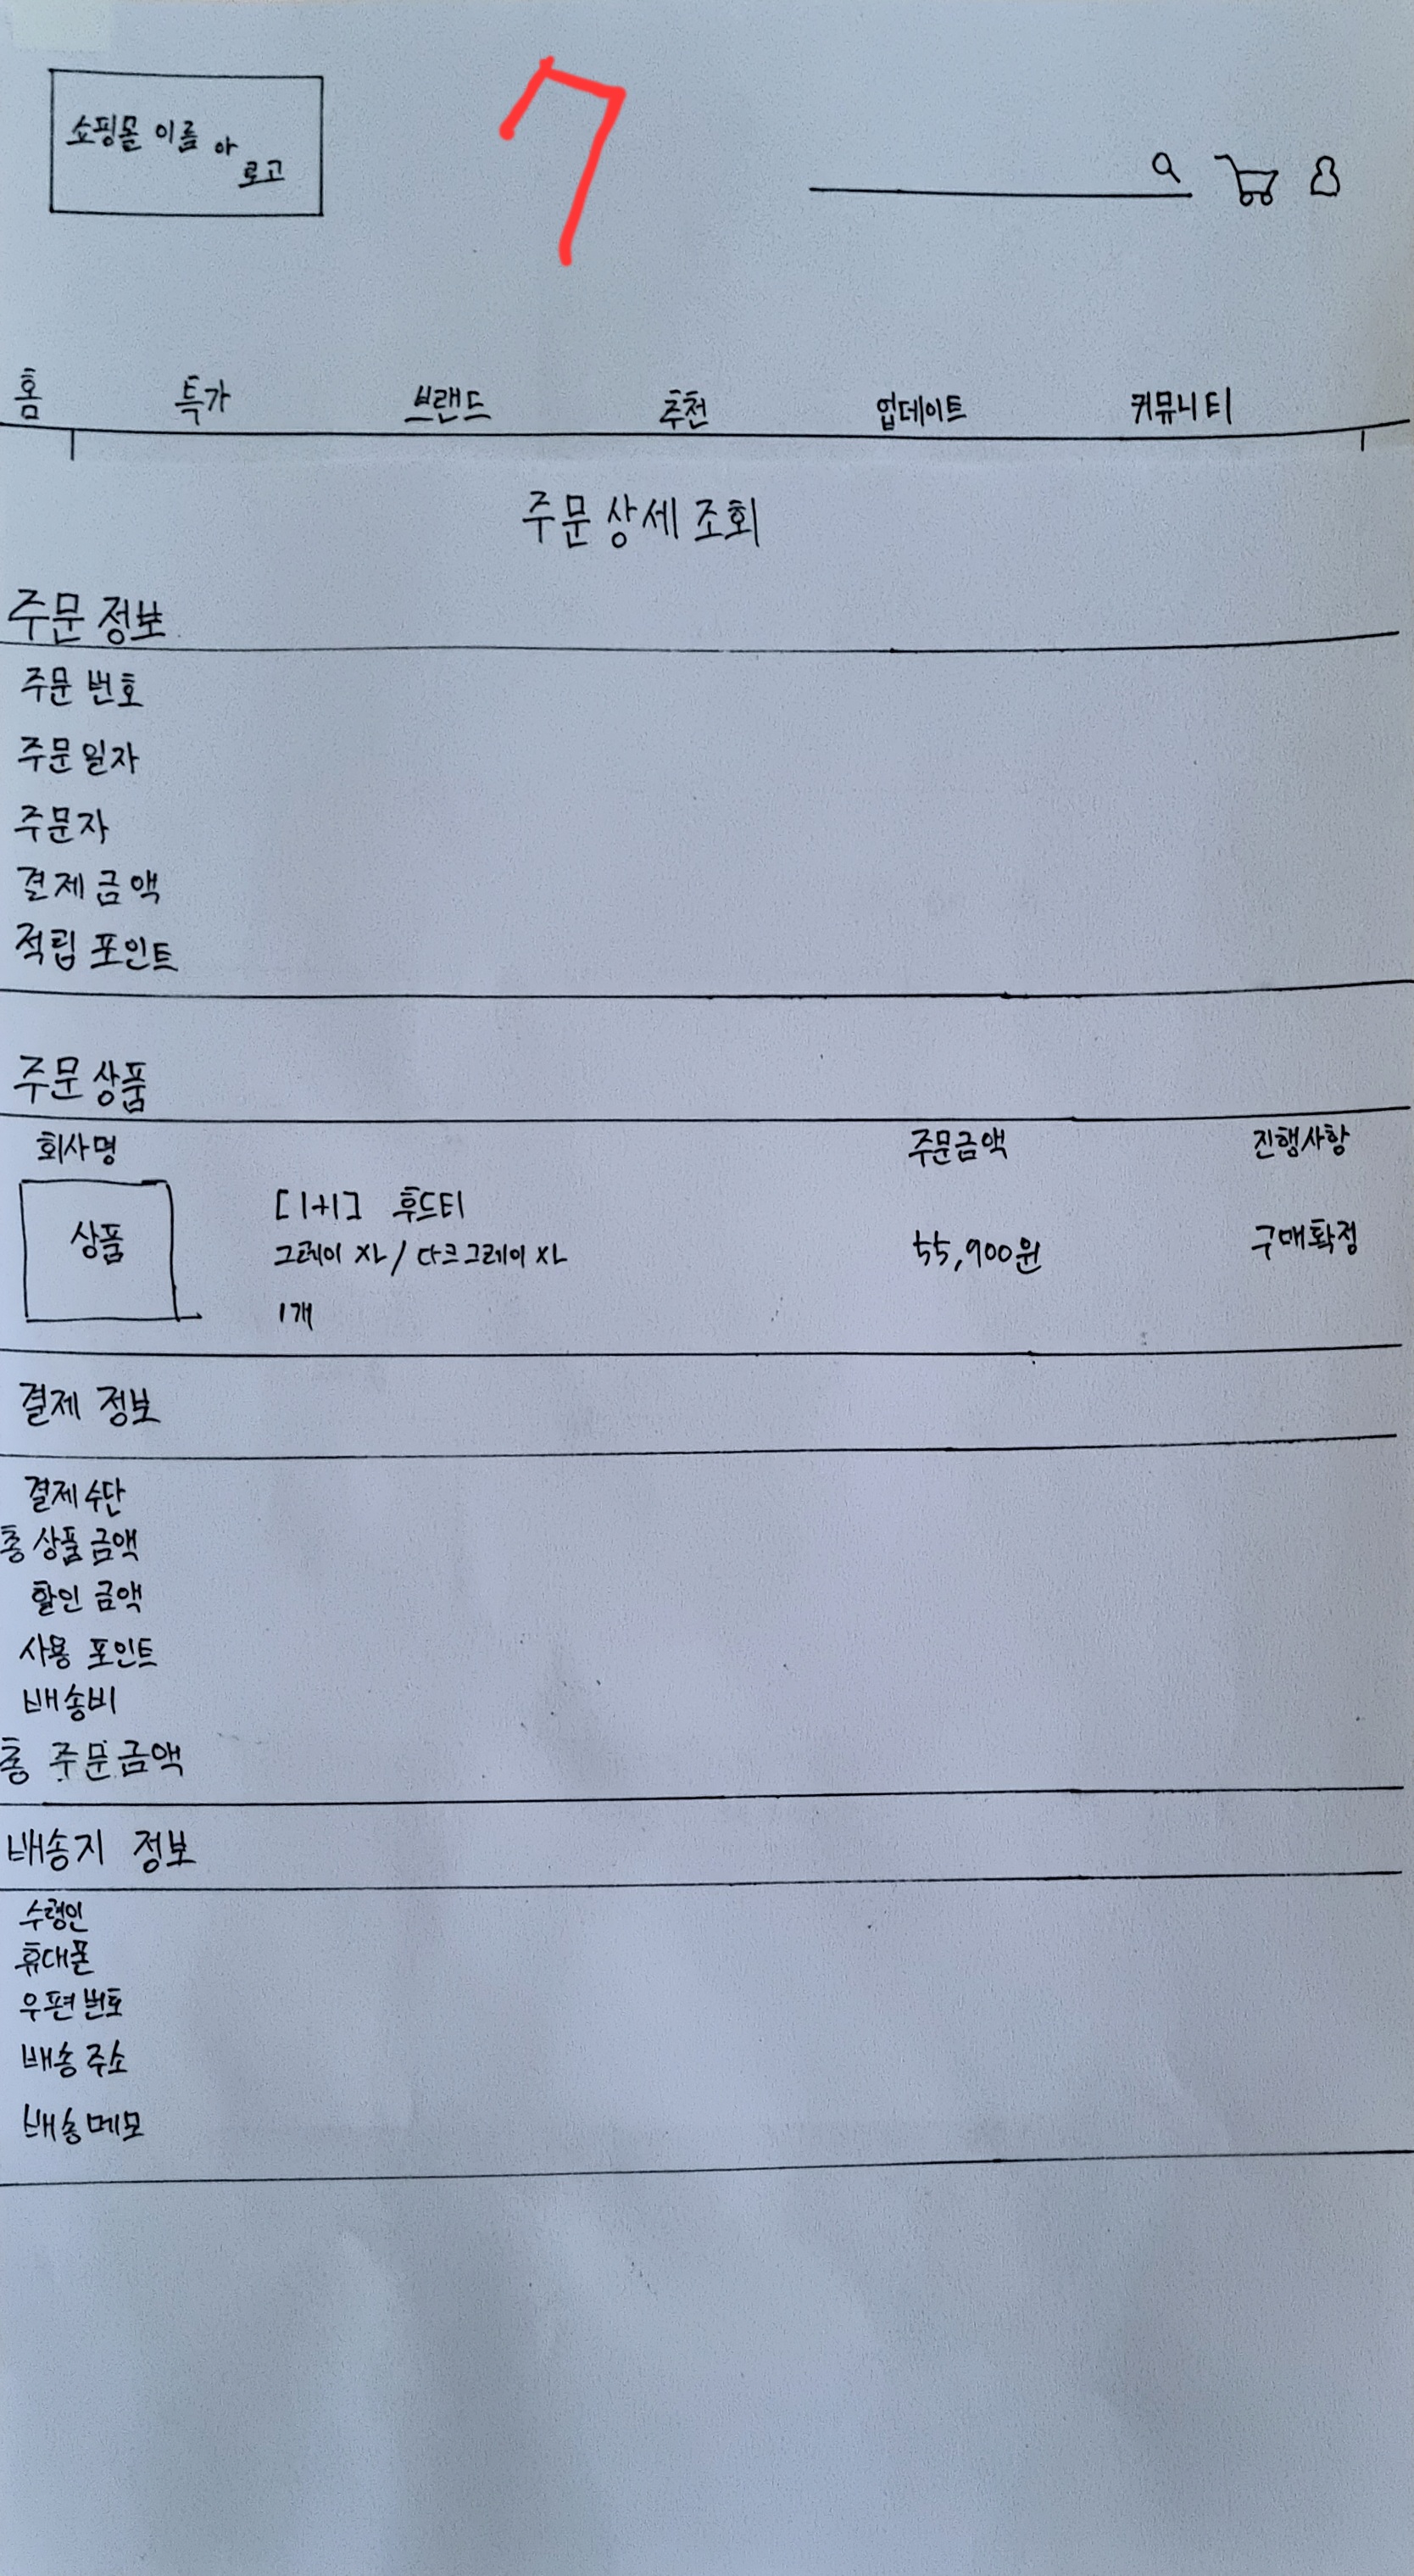 쇼핑몰 이름 아
로고
7
홈 특가 브랜드 추천 업데이트 커뮤니티
주문 상세 조회
주문 정보
주문 번호
주문일자
주문자
결제 금액
적립 포인트
주문 상품
회사명 주문금액 진행사항
상품
[1+1] 후드티
그레이 XL / 다크그레이 XL
1개
55,900원
구매확정
결제 정보
결제 수단
총 상품 금액
할인 금액
사용 포인트
배송비
총 주문 금액
배송지 정보
수령인
휴대폰
우편 번호
배송 주소
배송메모